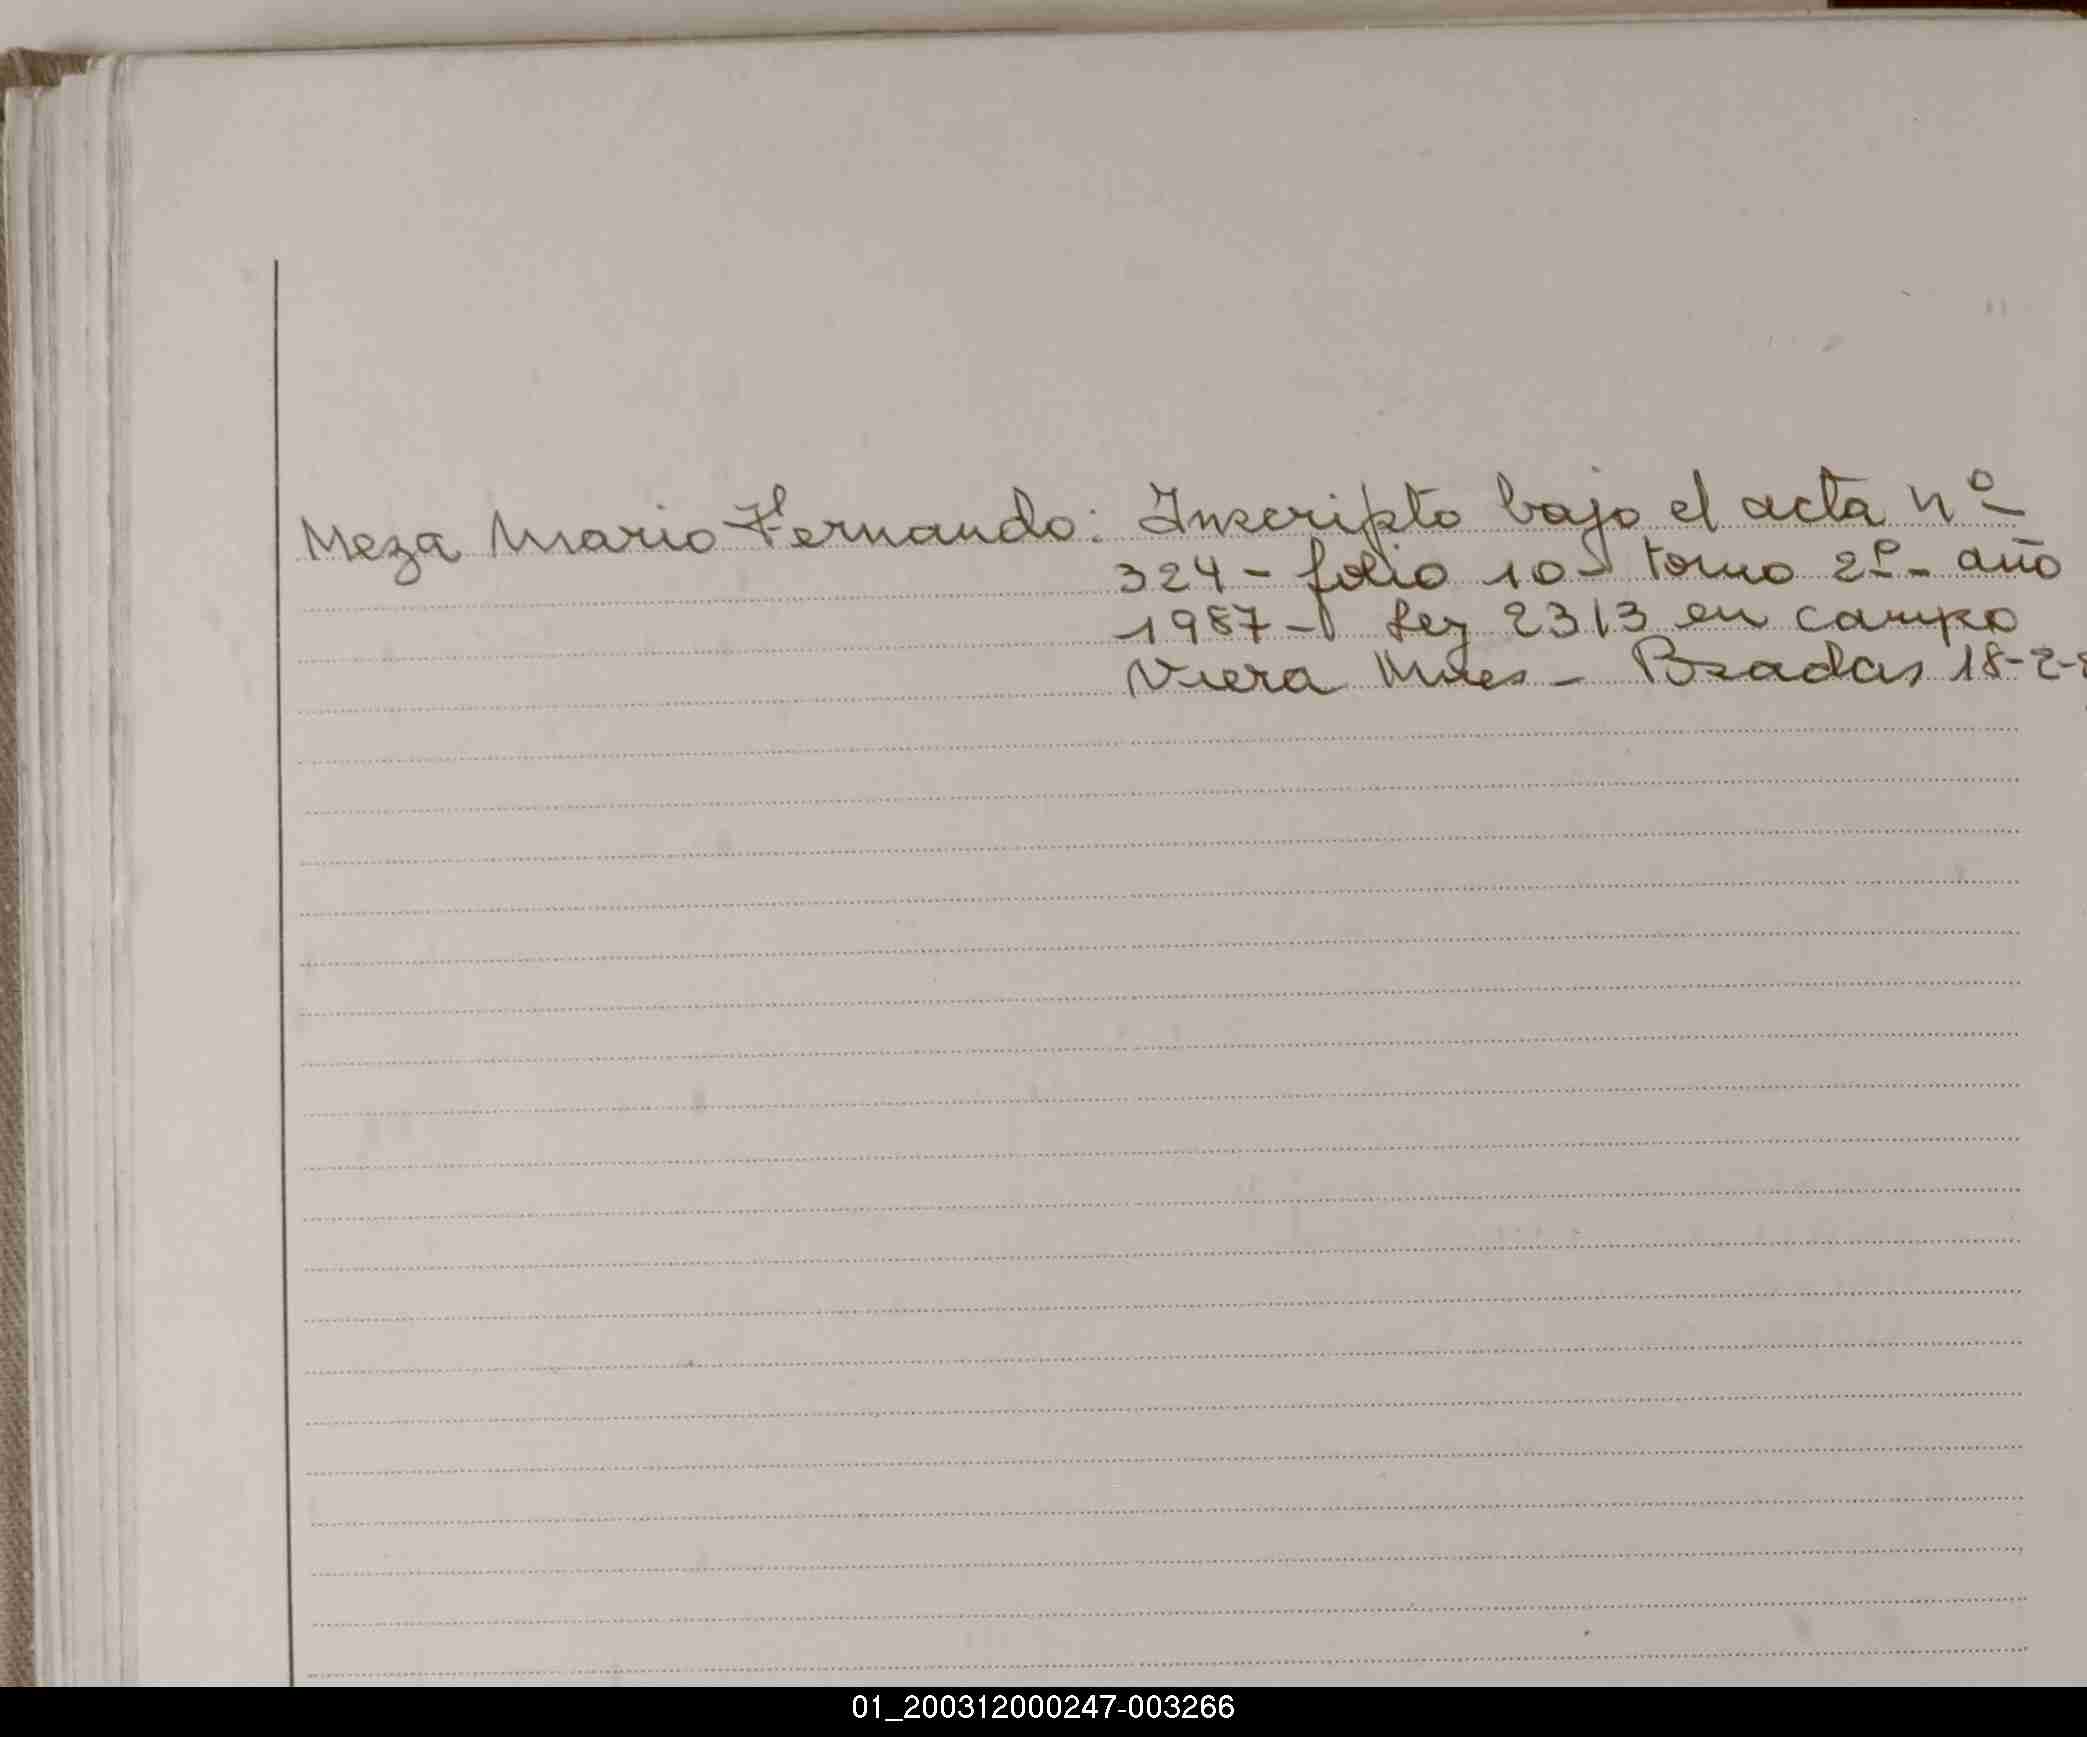 Meza Mario Fernando: Inscripto bajo el acta nº
324 - folio 10 - tomo 2º - año
1987 - Ley 2313 en campo
Viera Mnes - Bzadas 18-2-8
01_200312000247-003266